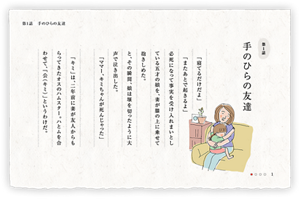 第1話　手のひらの友達
第1話
手のひらの友達
「寝てるだけだよ」
「またあとで起きるよ」
必死になって事実を受け入れまいとし
ている五才の娘を、妻が膝の上に乗せて
抱きしめた。
と、その瞬間、娘は堰を切ったように大
声で泣き出した。
「ママー、キミーちゃんが死んじゃった」
「キミー」は、二年前に妻が友人からも
らってきたオスのハムスター。ハムを公
わせて、「公(キミ)」というわけだ。
1